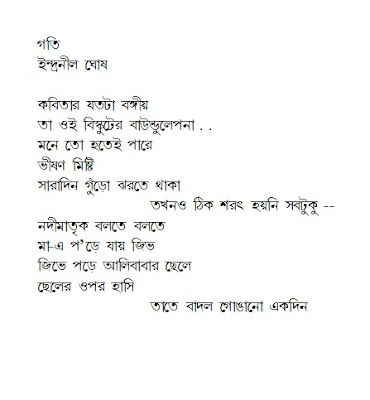 গতি
ইন্দ্রনীল ঘোষ
কবিতার যতটা বঙ্গীয়
তা ওই বিস্কুটের বাউন্ডুলেপনা . .
মনে তো হতেই পারে
ভীষণ মিষ্টি
সারাদিন গুঁড়ো ঝরতে থাকা
তখনও ঠিক শরৎ হয়নি সবটুকু --
নদীমাতৃক বলতে বলতে
মা-এ প'ড়ে যায় জিভ
জিভে পড়ে আলিবাবার ছেলে
ছেলের ওপর হাসি
তাতে বাদল গোঙানো একদিন